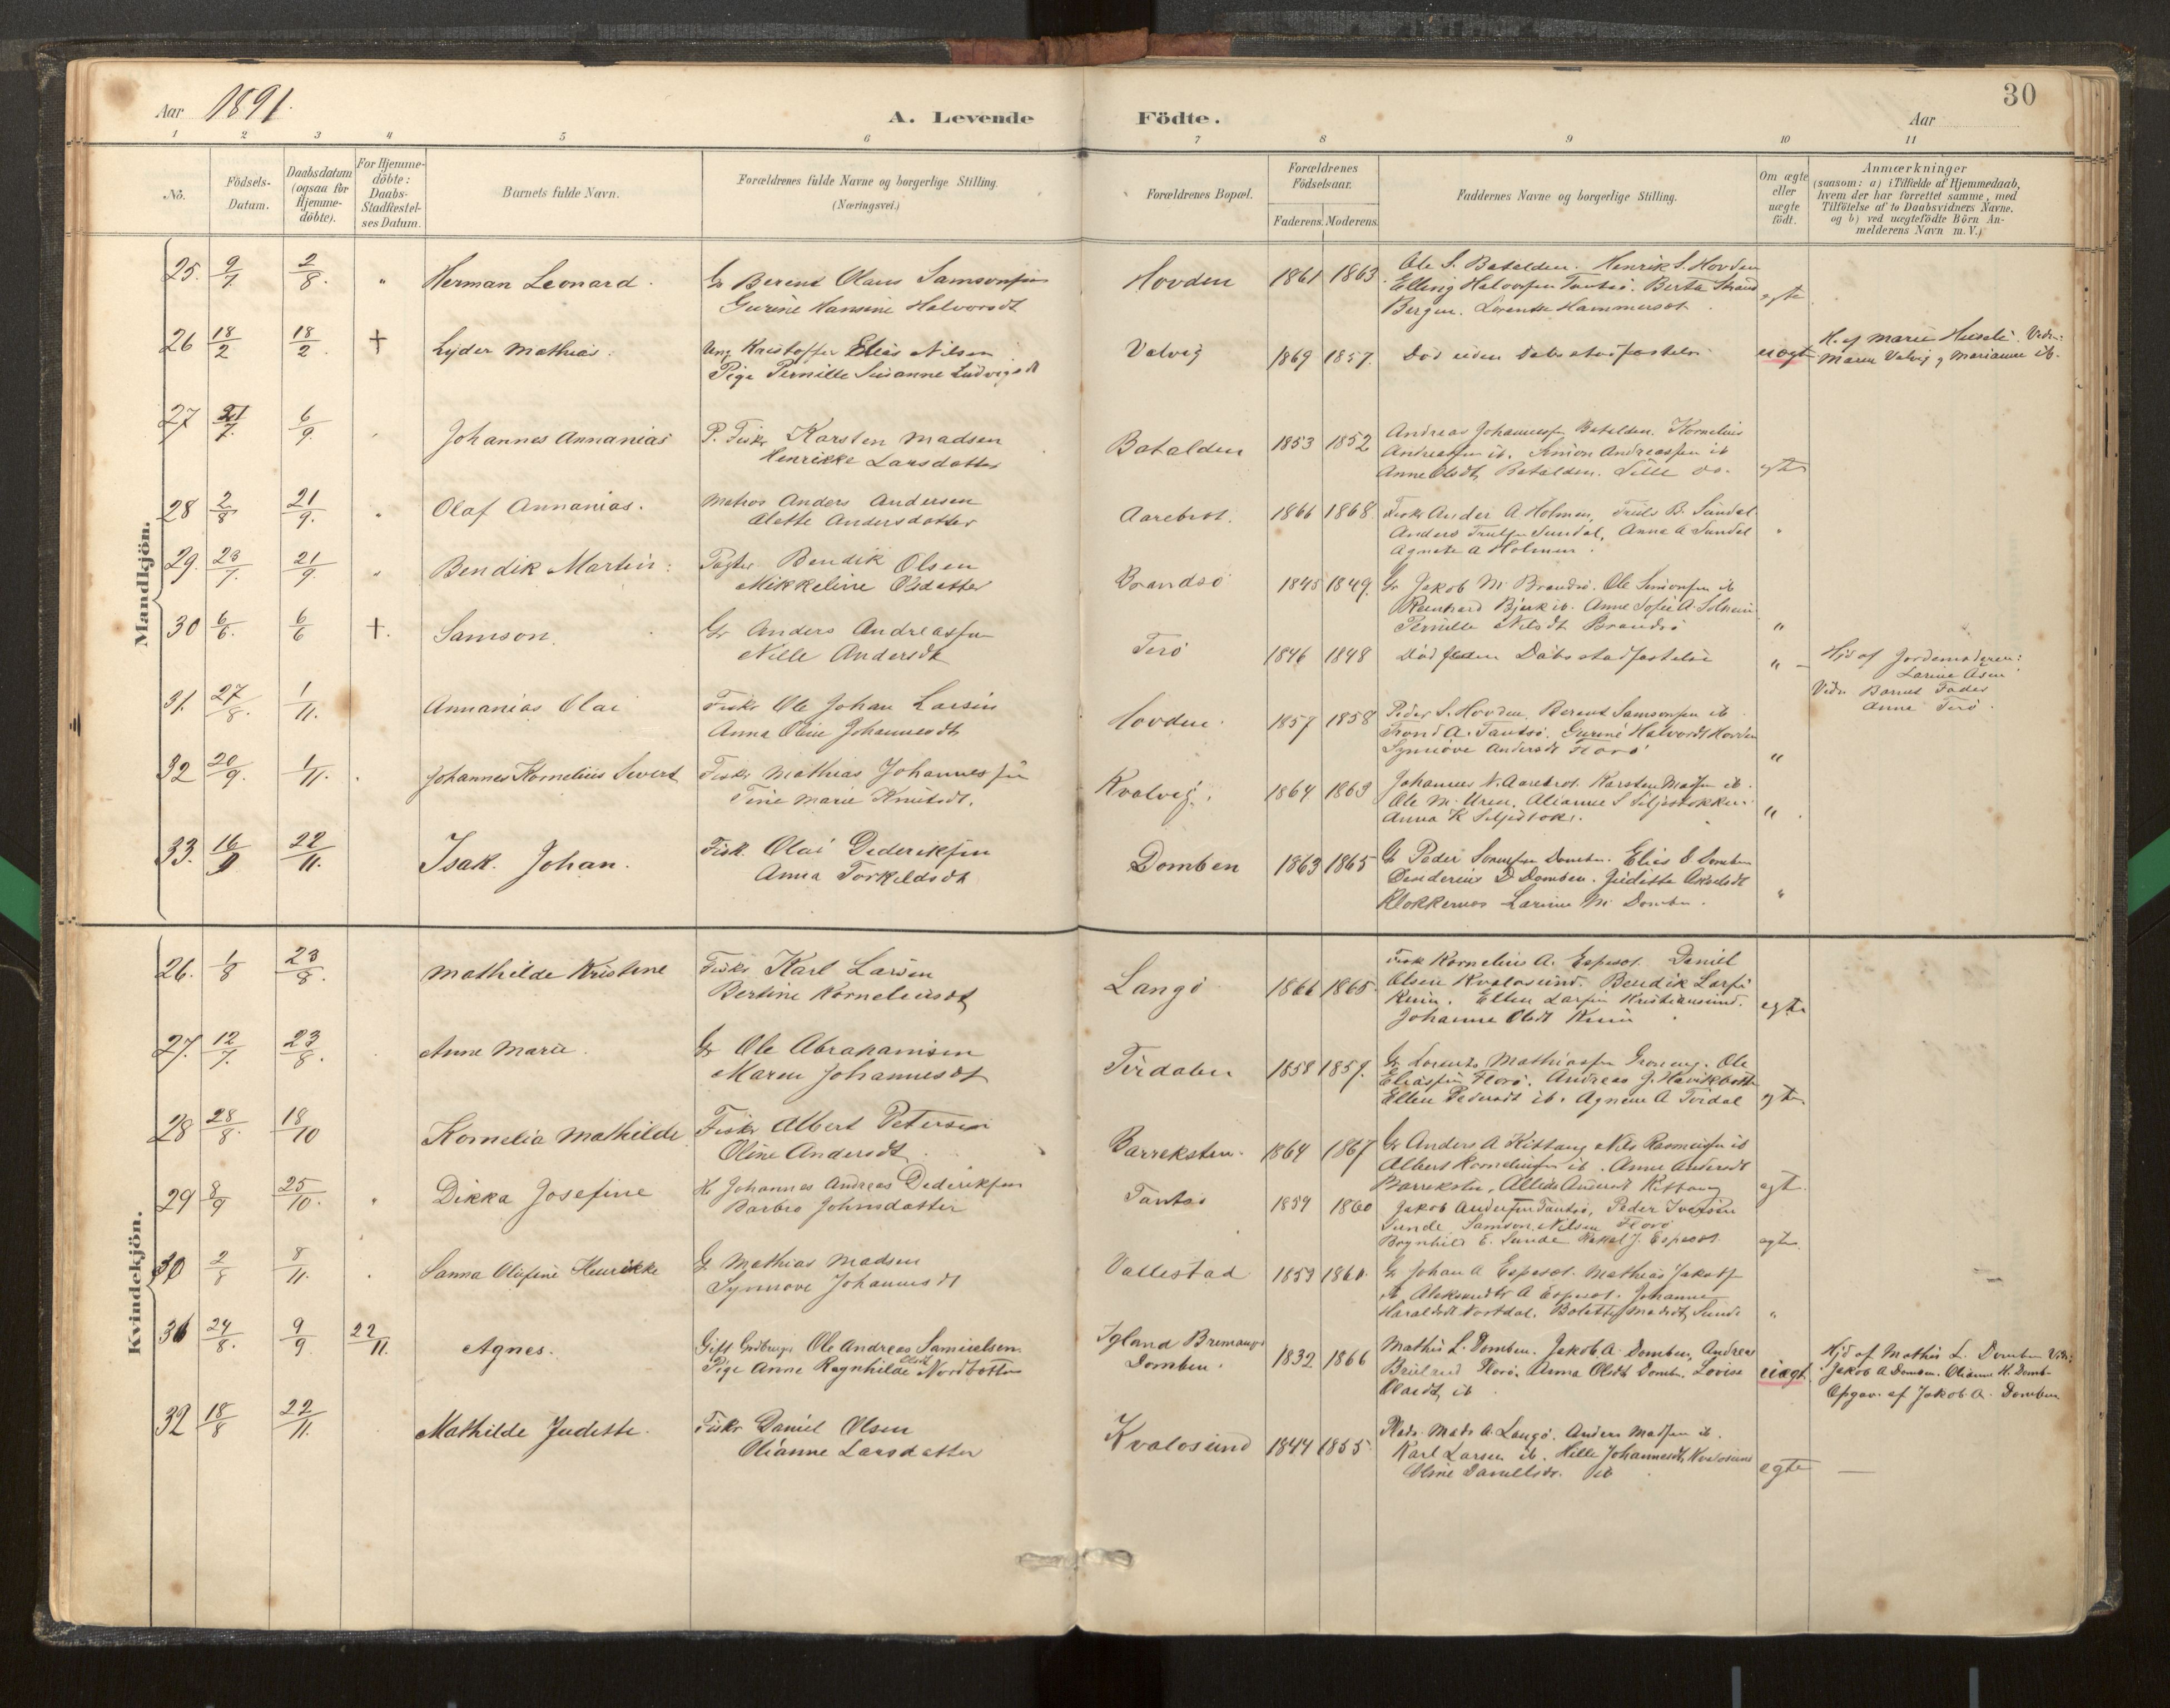 30
Aar 1891.
A. Levende Födte.
Aar
1 2 3 4 5 6 7 8 9 10 11
No.
Födsels-Datum.
Daabsdatum (ogsaa for Hjemme-döbte).
For Hjemme-döbte: Daabs-Stadfæstel-ses Datum.
Barnets fulde Navn.
Forældrenes fulde Navne og borgerlige Stilling.
(Næringsvei.)
Forældrenes Bopæl.
Forældrenes Födselsaar.
Faderens. Moderens.
Faddernes Navne og borgerlige Stilling.
Om ægte eller uægte födt.
Anmærkninger
(saasom: a) i Tilfælde af Hjemmedaab,
hvem der har forrettet samme, med
Tilföielse af to Daabsvidners Navne,
og b) ved uægtefödte Börn An-
melderens Navn m. V.)
Mandkjön.
25. 9/7 2/8 " Herman Leonard. Gr Berent Olaus Samsonsen
Gurine Hansine Halvorsdt
Hovden 1861 1863 Ole S. Batalden. Henrik S. Hovden
Elling Halvorsen Tansö. Berta Strand
Bergen. Hammerset. egte
26 18/2 18/2 + Lyder Mathias. Ung. Kristoffer Elias Nilsen
Pige Pernille Susanne Ludvigsdt
Valvig 1869 1857. Död uden Dabsstadfæstelse uægt H. af Marie Vidn:
Maren Valvig, Marianne ib.
27 /7. 6/9. Johannes Annanias P. Fisker Karsten Madsen
Henrikke Larsdatter
Batalden 1853 1852 Andreas Johannessen Batalden. Kornelius
Andreassen ib. Simon Andreassen ib
Anne Olsdt, Batalden. Sille do. egte
28 2/8 21/9. " Olaf Annanias. Matros Anders Andersen
Alette Andersdatter
Aarebrot. 1866 1868. Fisker Ander A Holmen, Truls B. Sundal
Anders Trulsen Sundal, Anna A Sundal
Agnete A Holmen. "
29. 23/7. 21/9. " Bendik Martin: Pagter Bendik Olsen
Mikkeline Olsdatter
Brandsö 1845 1849. Gr Jakob M. Brandsö. Ole Simonsen ib
Reinhard ib. Anne Sofie A. Solheim
Pernille Nilsdt Brandsö "
30 6/6. 6/6 +. Samson. Gr Anders Andreassen
Nille Andersdt
Terö 1846 1848 Död Dabsstadfæstelse " – Hjd af Jordemoderen:
Larine Asen
Vidn. Barnets Fader
Anna Terö.
31. 27/8. 1/11. Annanias Olai Fisker Ole Johan Larsen
Anna Oline Johannesdt
Hovden. 1857 1858 Peder S. Hovden. Berent Samsonsen ib
Trond A. Tansö. Gurine Halvorsdt Hovden
Synnöve Andersdt Florö "
32 20/9. 1/11. Johannes Kornelius Sivert Fisker Mathias Johannessen
Tine Marie Knutsdt.
Kvalvig. 1864 1863 Johannes N. Aarebrot. Karsten Madsen ib.
Ole M. Uren. Alianne S
Anna K "
33. 16/9 22/11. Isak. Johan. Fisk. Olai Dederiksen
Anna Torkildsdt
Domben 1863 1865 Gr Peder Domben. Elias Domben
Desiderius D Domben. Judithe
Klokkernes Larine M. Domben. "
Kvindekjön.
26. 1/8 23/8. Mathilde Kristine Fisker Karl Larsen
Bertine Korneliusdt,
Langö 1866 1865. Fisk Kornelius A. Espeset. Daniel
Olsen Kvalosund. Bendik
Kinn. Ellen Larsen Kristiansund.
Johanne Olsdt Kinn. egte
27. 12/7. 23/8. Anne Marie. Gr Ole Abrahamsen
Maren Johannesdt
Tirdalen 1858 1857. Gr Lorents Mathiassen. Ole
Eliassen Florö. Andreas J.
Ellen Pedersdt ib. Agnete A Tirdal egte
28 28/8. 18/10 Kornelia Mathilde Fisker Albert Petersen
Oline Andersdt.
Barreksten. 1864 1867 Gr Anders A Kittang Nils Rasmussen ib
Albert Korneliussen ib. Anne Andersdt
Barreksten, Andersdt Kittang egt.
29 8/9 25/10. " Dikka Josefine H Johannes Andreas Dederiksen
Barbro Johnsdatter
Tansö 1859 1860 Jakob Andersen Tansö, Peder Iversen
Sunde Samson Nilsen Florö
Brynhild E. Sunde J. Espeset egte.
30 2/8 8/11. Sanna Olufine Henrikke G. Mathias Madsen
Synnove Johannesdt
Vallestad 1859 1860. Gr Johan A Espeset. Mathias
Aleksander A Espeset. Johanne
Haraldsdt Nordal. Bolette Madsdt, Sunde "
31 24/8. 9/9. 22/11. Agnes. Gift Gaardbruger Ole Andreas Samuelsen
Pige Anne Ragnhilde Olsdt Nordbotten
Igland Bremanger
Domben. 1832 1866 Mathis L. Domben. Jakob A Domben, Andreas
Florö. Anna Olsdt Domben. Lovise
Olaidt, ib uægt. Hjd af Mathis L. Domben Vidn:
Jakob A Domben. Olianne H. Domb-
Opgav. af Jakob A. Domben
32 18/8 22/11. Mathilde Judithe. Fisker Daniel Olsen
Olianne Larsdatter
Kvalosund 1844 1855 Mads A. Langö. Anders Madsen ib.
Karl Larsen ib. Hille Johannesdt, Kvalosund
Oline Danielsdt. ib egte —